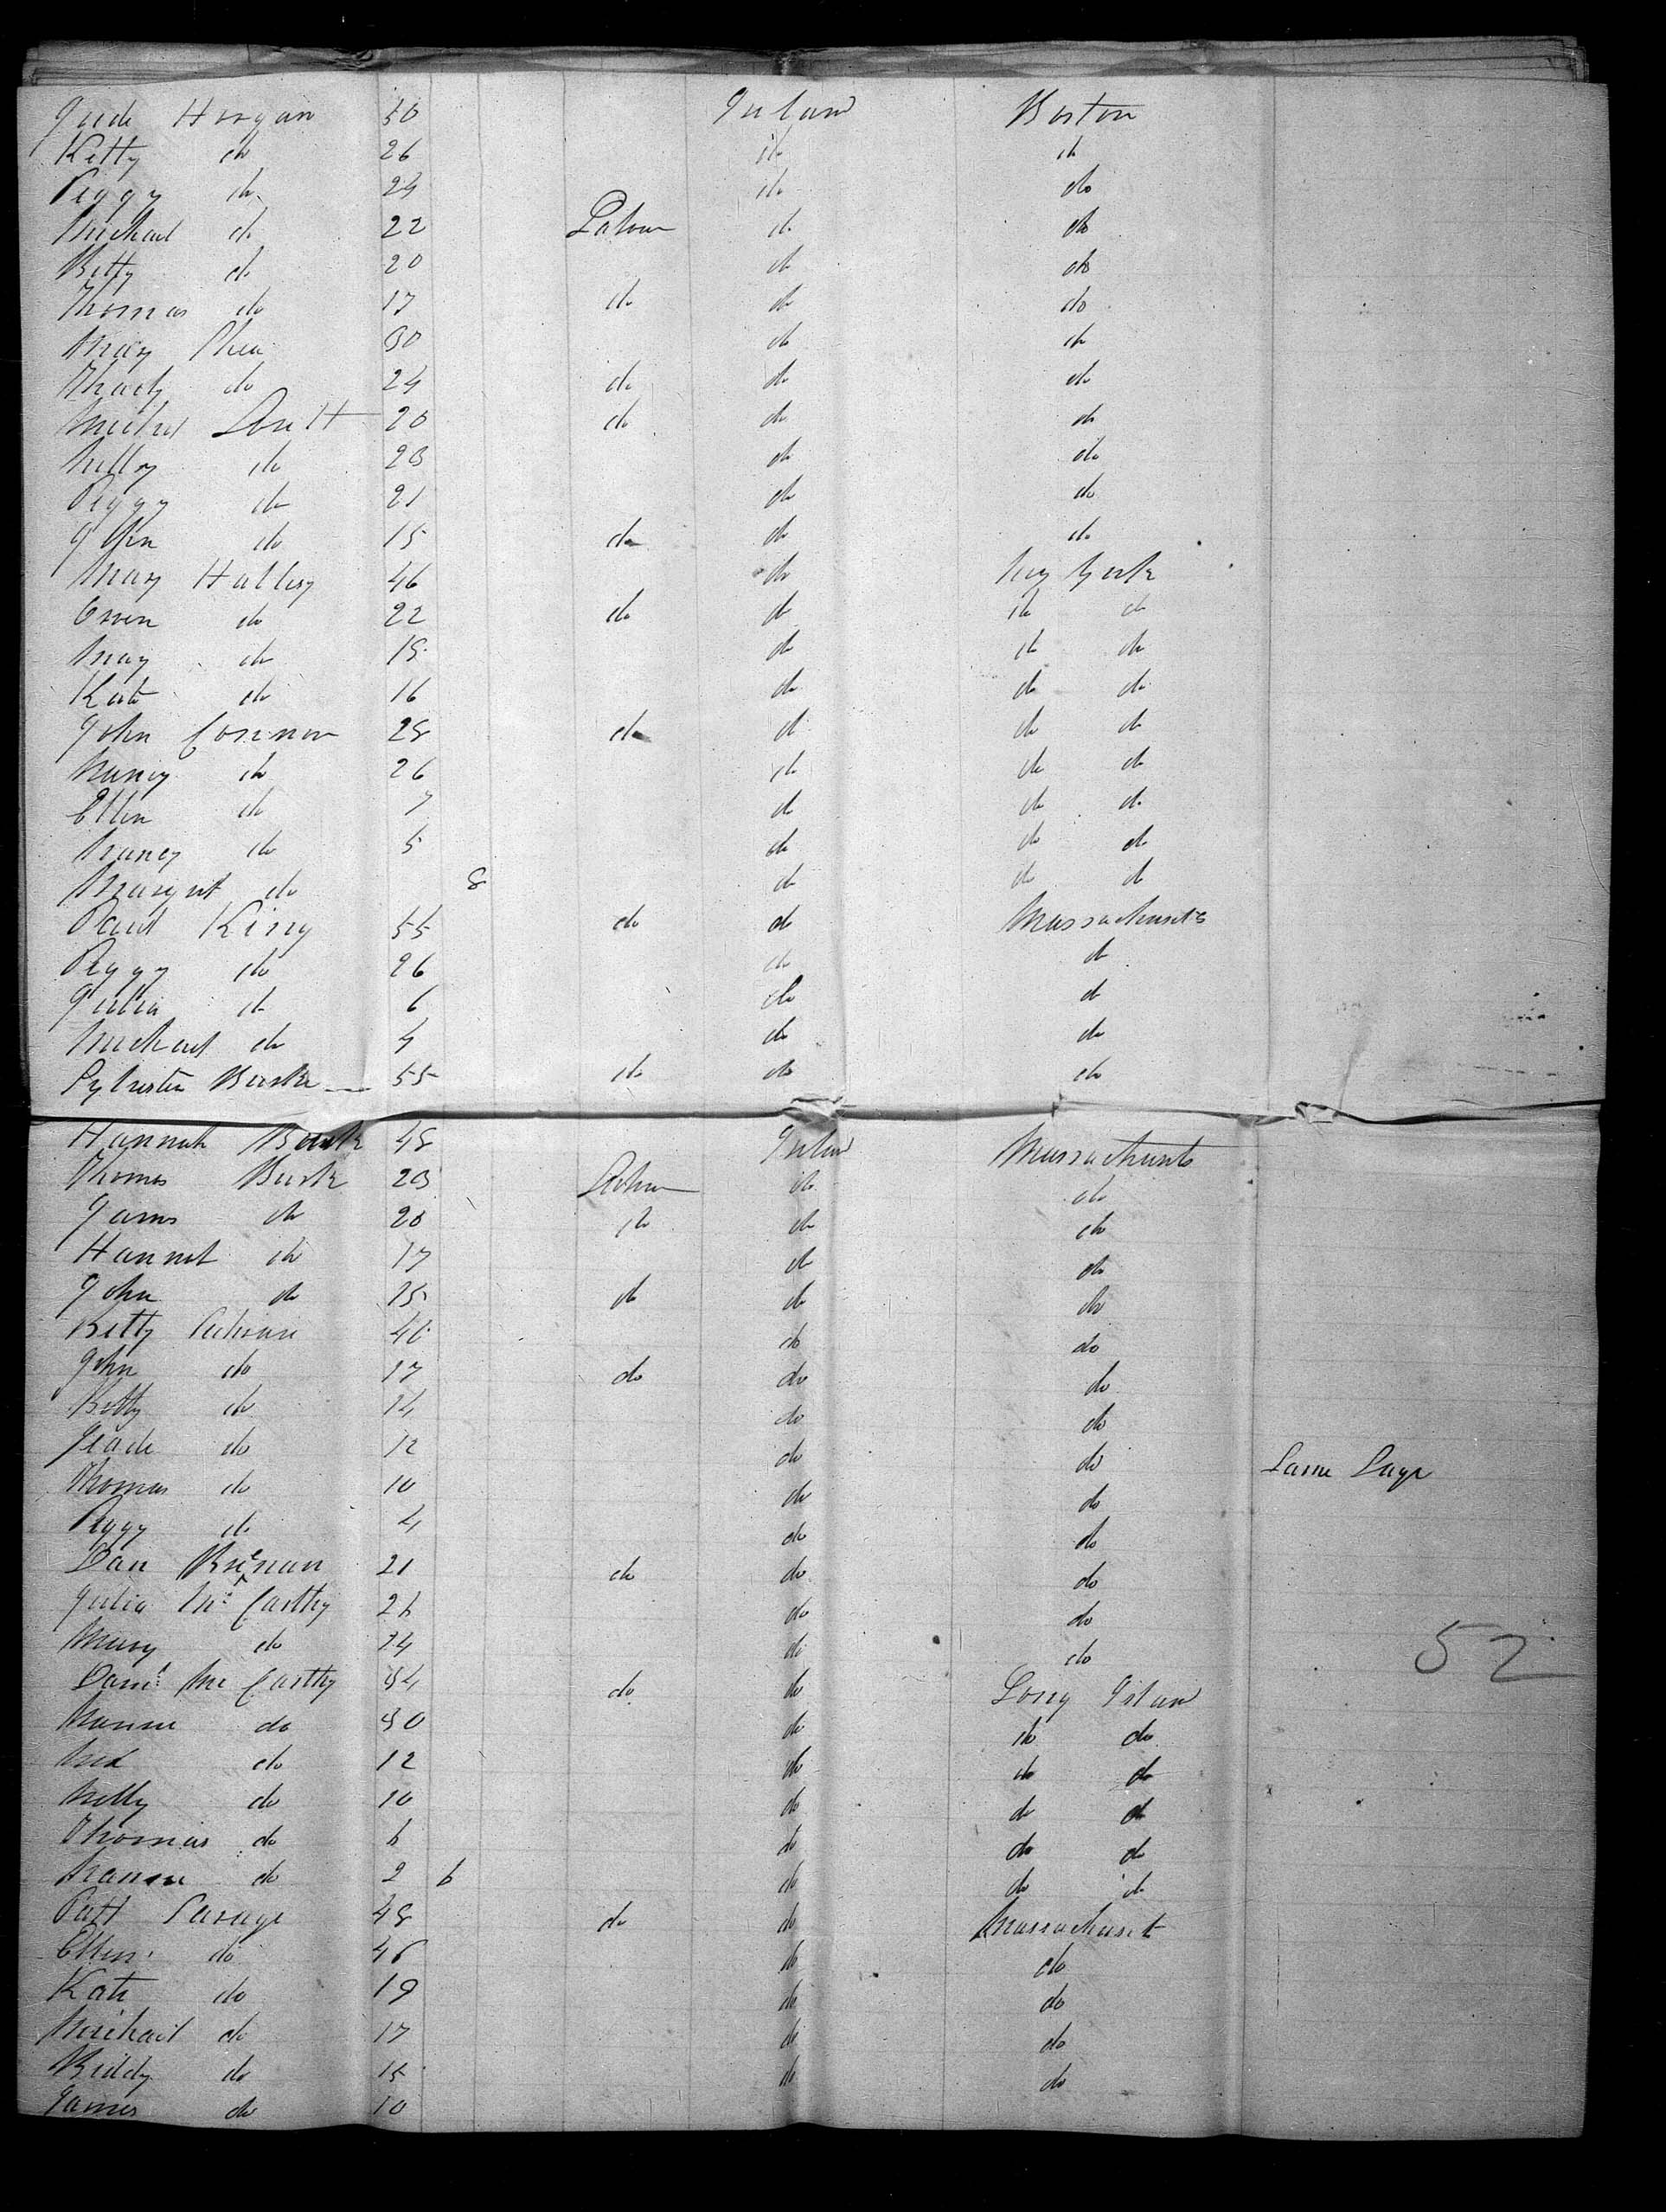 Jude Horgan 50 Ireland Boston
Kitty do 26 do do
Peggy do 24 do do
Michael do 22 Labour do do
Betty do 20 do do
Thomas do 17 do do do
Mary Shea 30 do do
Thady do 24 do do do
Michel 20 do do do
Nelly do 23 do do
Peggy do 21 do do
John do 15 do do do
Mary 46 do New York
Owen do 22 do do do do
Mary do 18 do do do
Kate do 16 do do do
John Connor 28 do do do do
Nancy do 26 do do do
Ellen do 7 do do do
Nancy do 5 do do do
Margret do 8 do do do
Paul King 55 do do Massachusets
Peggy do 26 do do
Julia do 6 do do
Michael do 4 do do
Sylvester Burke 55 do do do
Hannah Burke 48 Ireland Massachusets
Thomas Burke 23 Labour do do
James do 20 do do do
Hannah do 17 do do
John do 15 do do do
Kitty 46 do do
John do 17 do do do
Kitty do 14 do do
Jude do 12 do do
Thomas do 10 do do
Peggy do 4 do do
Dan Brenan 21 do do do
Julia Mc Carthy 26 do do
Mary do 24 do do
Danl Mc Carthy 34 do do Long Island
do 30 do do do
do 12 do do do
Nelly do 10 do do do
Thomas do 6 do do do
do 2 6 do do do
Patt Savage 48 do do Massachuset
Ellen do 46 do do
Kate do 19 do do
Michael do 17 do do
Biddy do 15 do do
James do 10
52